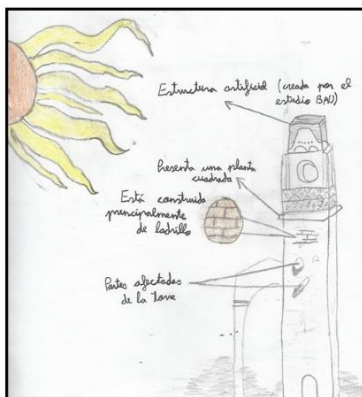 Estructura artificial (creada por el
estudio BAU)
Presenta una planta
cuadrada
Está construida
principalmente
de ladrillo
Partes afectadas
de la torre